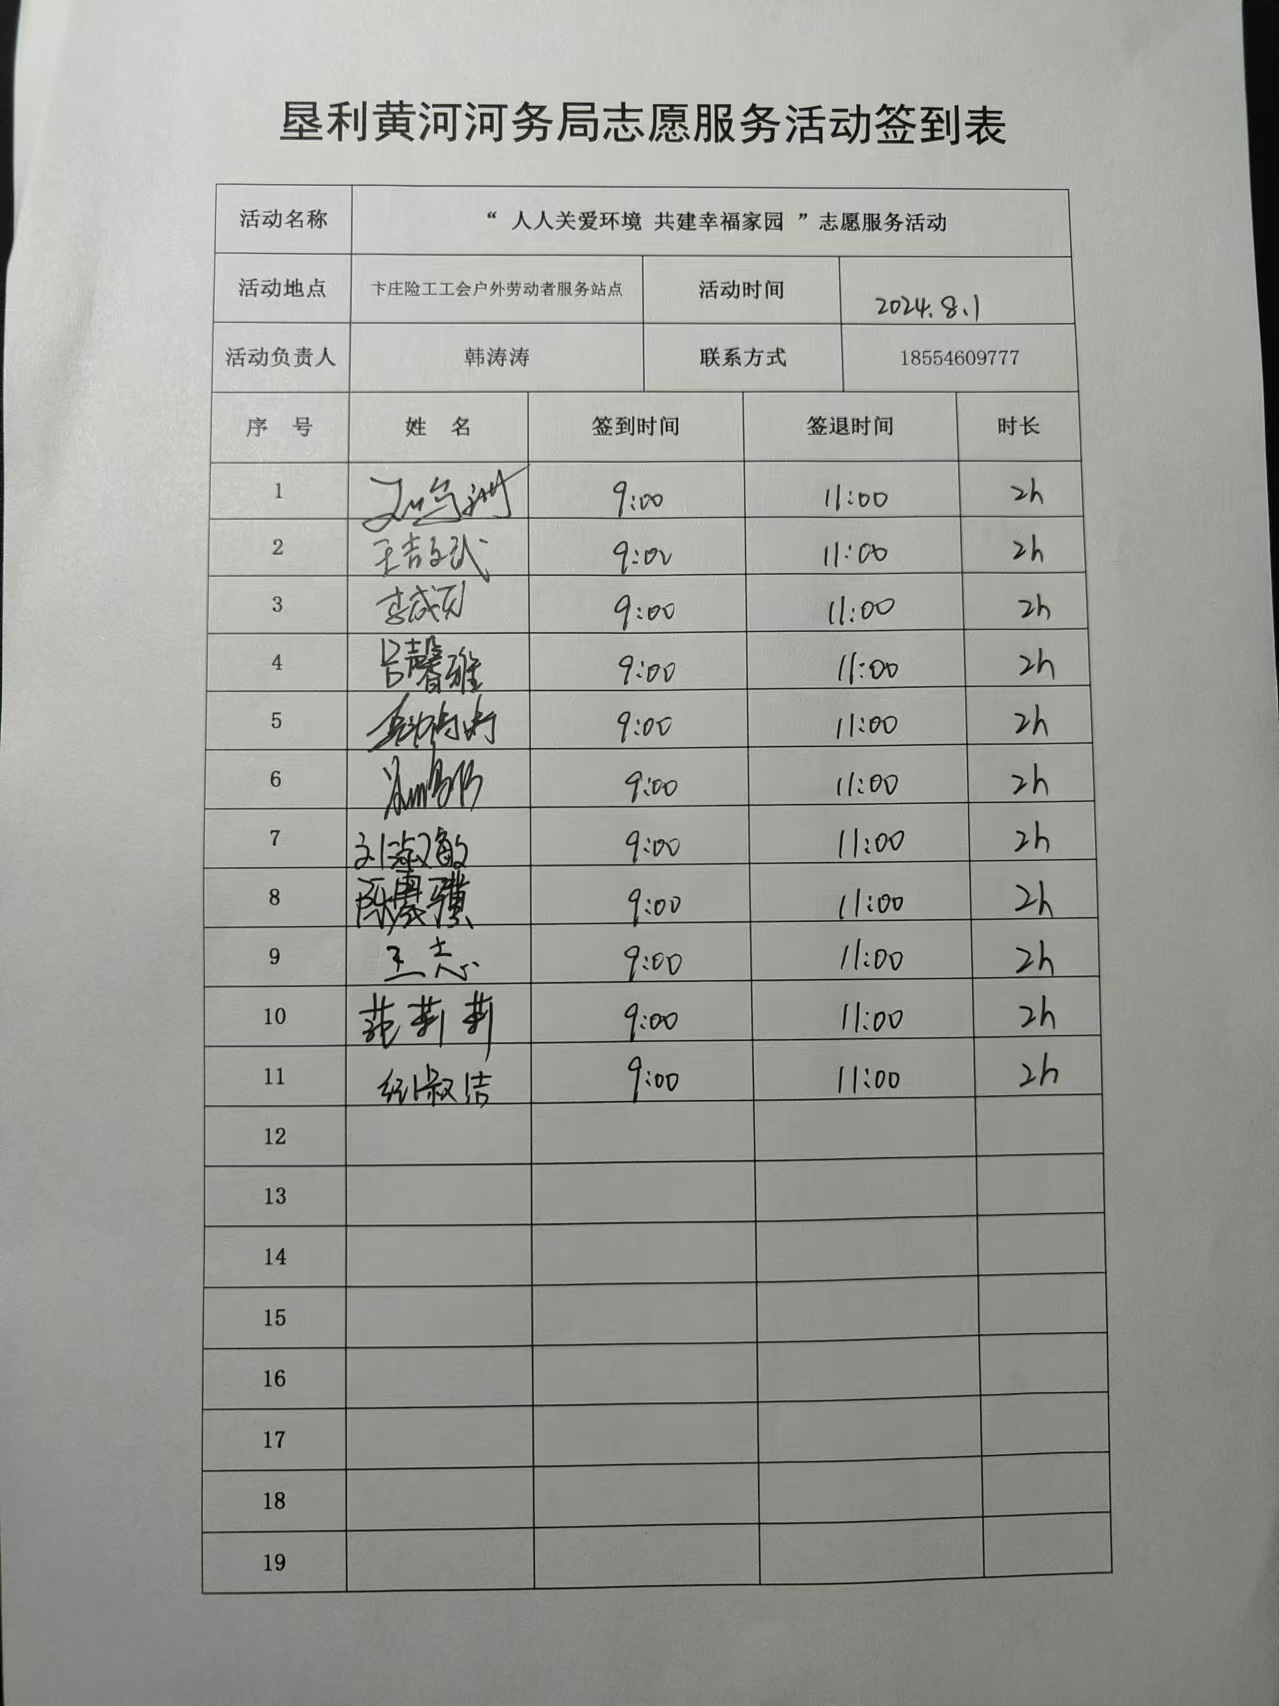 垦利黄河河务局志愿服务活动签到表
活动名称 “ 人人关爱环境 共建幸福家园 ”志愿服务活动
活动地点 卞庄险工工会户外劳动者服务站点 活动时间 2024.8.1
活动负责人 韩涛涛 联系方式 18554609777
序 号 姓 名 签到时间 签退时间 时长
1 9:00 11:00 2h
2 王吉文武 9:00 11:00 2h
3 李成刚 9:00 11:00 2h
4 吕馨雅 9:00 11:00 2h
5 9:00 11:00 2h
6 9:00 11:00 2h
7 刘淑敏 9:00 11:00 2h
8 陈震骥 9:00 11:00 2h
9 王志 9:00 11:00 2h
10 范莉莉 9:00 11:00 2h
11 纪淑洁 9:00 11:00 2h
12
13
14
15
16
17
18
19